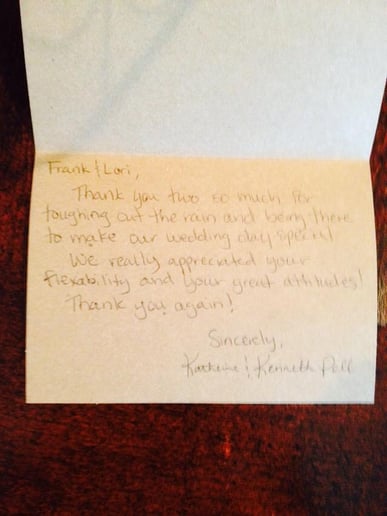 Frank & Lori,
Thank you two so much for
toughing out the rain and being there
to make our wedding day special
We really appreciated your
flexability and your great attitudes!
Thank you again!
Sincerely,
& Kenneth